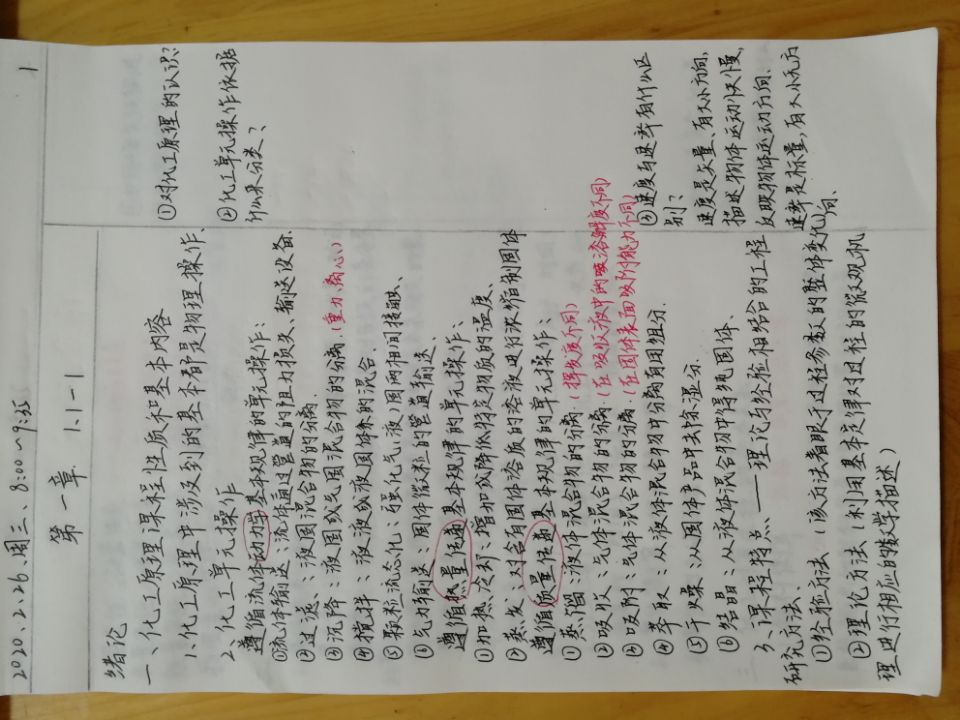 2020.2.26.周三、8:00~9:35
1
第一章 1.1-1
绪论
一、化工原理课程性质和基本内容
1、化工原理中涉及到的基本都是物理操作、
2、化工单元操作
遵循流体动力学基本规律的单元操作：
①流体输送：流体通过管道的阻力损失、输送设备.
②过滤：液固混合物的分离.
③沉降：液固或气固混合物的分离.（重力、离心）
④搅拌：液液或液固体系的混合.
⑤颗粒流态化：强化气（液）固两相间接触、
⑥气力输送：固体微粒的管道输送.
遵循热量传递基本规律的单元操作：
①加热冷却：增加或降低特定物质的温度、
②蒸发：对含有固体溶质的溶液进行浓缩制固体
遵循质量传递基本规律的单元操作：
①蒸馏：液体混合物的分离.（挥发度不同）
②吸收：气体混合物的分离.（在吸收液中的吸溶解度不同）
③吸附：气体混合物的分离（在固体表面吸附能力不同）
④萃取：从液体混合物中分离有用组分.
⑤干燥：从固体产品中去除湿分.
⑥结晶：从液体混合物中得纯固体、
3、课程特点——理论与经验相结合的工程
研究方法、
①经验方法（该方法着眼于过程参数的整体变化）
②理论方法（利用基本定律对过程的微观机
理进行相应的数学描述）
①对化工原理的认识？
②化工单元操作依据
什么来分类？
③速度与速率有什么区
别？
速度是矢量，有大小方向，
描述物体运动快慢，
反映物体运动方向.
速率是标量，有大小无方
向.